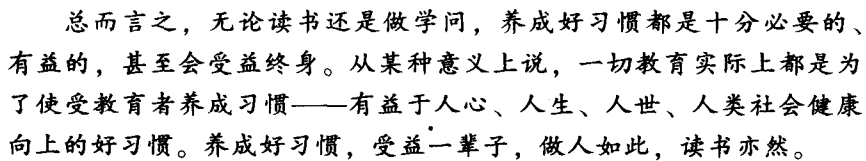 总而言之，无论读书还是做学问，养成好习惯都是十分必要的、
有益的，甚至会受益终身。从某种意义上说，一切教育实际上都是为
了使受教育者养成习惯——有益于人心、人生、人世、人类社会健康
向上的好习惯。养成好习惯，受益一辈子，做人如此，读书亦然。